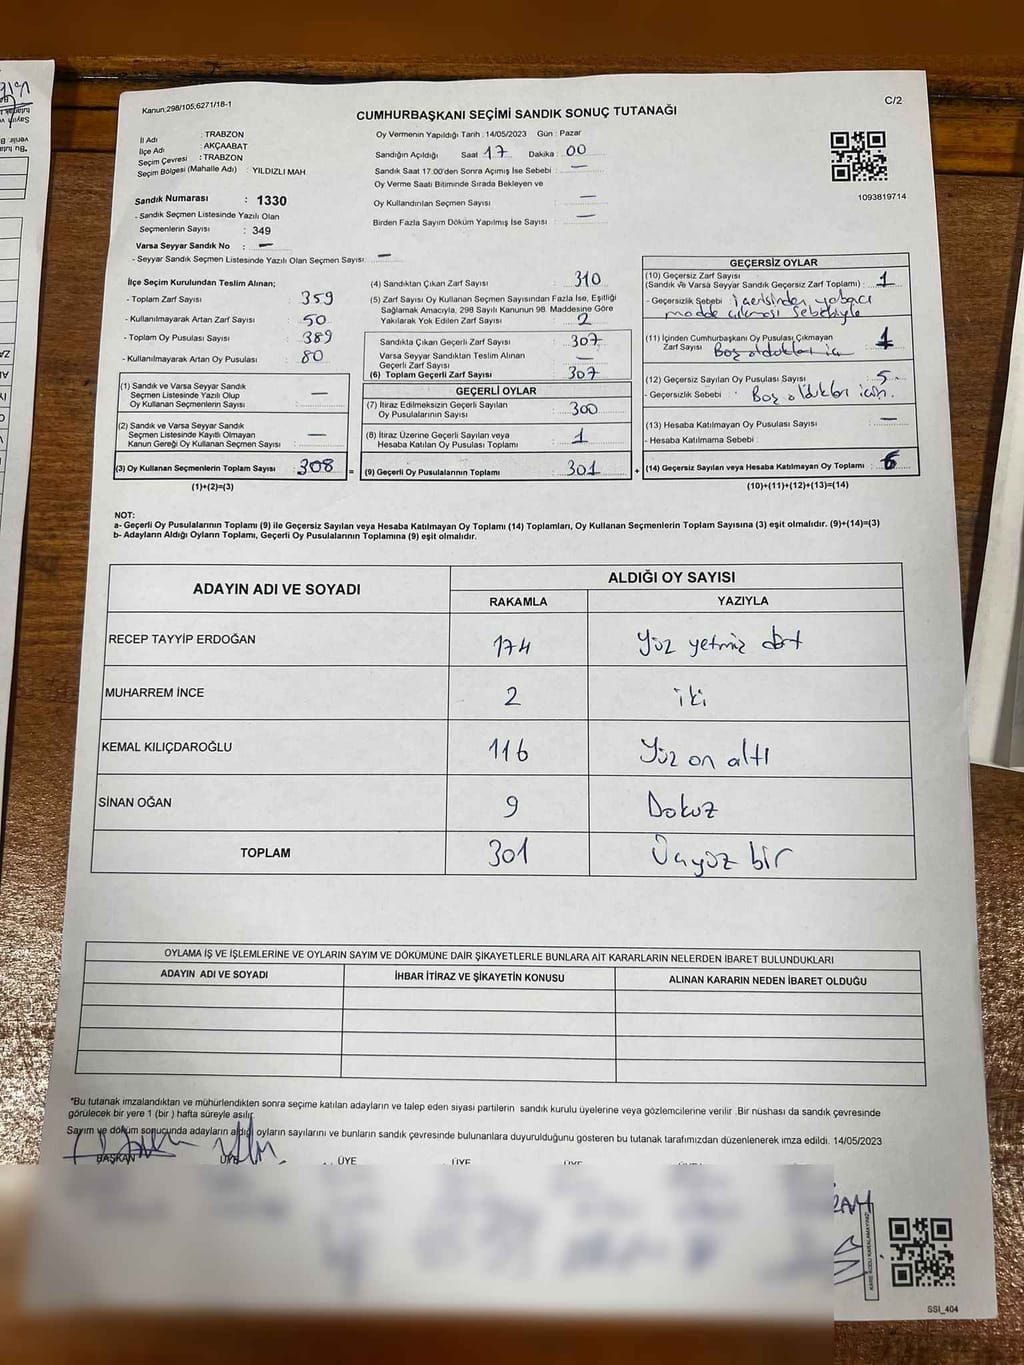 Kanun;298/105;6271/18-1
C/2
CUMHURBAŞKANI SEÇİMİ SANDIK SONUÇ TUTANAĞI
İl Adı : TRABZON
İlçe Adı : AKÇAABAT
Seçim Çevresi : TRABZON
Seçim Bölgesi (Mahalle Adı) : YILDIZLI MAH
Sandık Numarası : 1330
- Sandık Seçmen Listesinde Yazılı Olan
Seçmenlerin Sayısı : 349
Varsa Seyyar Sandık No : —
- Seyyar Sandık Seçmen Listesinde Yazılı Olan Seçmen Sayısı: —
Oy Vermenin Yapıldığı Tarih : 14/05/2023 Gün : Pazar
Sandığın Açıldığı Saat 17 Dakika : 00
Sandık Saat 17:00'den Sonra Açımış İse Sebebi : —
Oy Verme Saati Bitiminde Sırada Bekleyen ve
Oy Kullandırılan Seçmen Sayısı : —
Birden Fazla Sayım Döküm Yapılmış İse Sayısı : —
1093819714
İlçe Seçim Kurulundan Teslim Alınan;
- Toplam Zarf Sayısı : 359
- Kullanılmayarak Artan Zarf Sayısı : 50
- Toplam Oy Pusulası Sayısı : 389
- Kullanılmayarak Artan Oy Pusulası : 80
(1) Sandık ve Varsa Seyyar Sandık
Seçmen Listesinde Yazılı Olup
Oy Kullanan Seçmenlerin Sayısı : —
(2) Sandık ve Varsa Seyyar Sandık
Seçmen Listesinde Kayıtlı Olmayan
Kanun Gereği Oy Kullanan Seçmen Sayısı : —
(3) Oy Kullanan Seçmenlerin Toplam Sayısı : 308
(1)+(2)=(3)
=
(4) Sandıktan Çıkan Zarf Sayısı : 310
(5) Zarf Sayısı Oy Kullanan Seçmen Sayısından Fazla İse, Eşitliği
Sağlamak Amacıyla, 298 Sayılı Kanunun 98. Maddesine Göre
Yakılarak Yok Edilen Zarf Sayısı : 2
Sandıkta Çıkan Geçerli Zarf Sayısı : 307
Varsa Seyyar Sandıktan Teslim Alınan
Geçerli Zarf Sayısı : —
(6) Toplam Geçerli Zarf Sayısı : 307
GEÇERLİ OYLAR
(7) İtiraz Edilmeksizin Geçerli Sayılan
Oy Pusulalarının Sayısı : 300
(8) İtiraz Üzerine Geçerli Sayılan veya
Hesaba Katılan Oy Pusulası Sayısı : 1
(9) Geçerli Oy Pusulalarının Toplamı : 301
+
GEÇERSİZ OYLAR
(10) Geçersiz Zarf Sayısı
(Sandık ve Varsa Seyyar Sandık Geçersiz Zarf Toplamı) : 1
- Geçersizlik Sebebi : içerisinden yabacı
madde çıkması sebebiyle
(11) İçinden Cumhurbaşkanı Oy Pusulası Çıkmayan
Zarf Sayısı : 1 Boş oldukları için
(12) Geçersiz Sayılan Oy Pusulası Sayısı : 5
- Geçersizlik Sebebi : Boş oldukları için.
(13) Hesaba Katılmayan Oy Pusulası Sayısı : —
- Hesaba Katılmama Sebebi :
(14) Geçersiz Sayılan veya Hesaba Katılmayan Oy Toplamı : 6
(10)+(11)+(12)+(13)=(14)
NOT:
a- Geçerli Oy Pusulalarının Toplamı (9) ile Geçersiz Sayılan veya Hesaba Katılmayan Oy Toplamı (14) Toplamları, Oy Kullanan Seçmenlerin Toplam Sayısına (3) eşit olmalıdır. (9)+(14)=(3)
b- Adayların Aldığı Oyların Toplamı, Geçerli Oy Pusulalarının Toplamına (9) eşit olmalıdır.
ADAYIN ADI VE SOYADI ALDIĞI OY SAYISI
RAKAMLA YAZIYLA
RECEP TAYYİP ERDOĞAN 174 Yüz yetmiş dört
MUHARREM İNCE 2 iki
KEMAL KILIÇDAROĞLU 116 Yüz on altı
SİNAN OĞAN 9 Dokuz
TOPLAM 301 Üçyüz bir
OYLAMA İŞ VE İŞLEMLERİNE VE OYLARIN SAYIM VE DÖKÜMÜNE DAİR ŞİKAYETLERLE BUNLARA AİT KARARLARIN NELERDEN İBARET BULUNDUKLARI
ADAYIN ADI VE SOYADI İHBAR İTİRAZ VE ŞİKAYETİN KONUSU ALINAN KARARIN NEDEN İBARET OLDUĞU
"Bu tutanak imzalandıktan ve mühürlendikten sonra seçime katılan adayların ve talep eden siyasi partilerin sandık kurulu üyelerine veya gözlemcilerine verilir .Bir nüshası da sandık çevresinde
görülecek bir yere 1 (bir ) hafta süreyle asılır.
Sayım ve döküm sonucunda adayların aldığı oyların sayılarını ve bunların sandık çevresinde bulunanlara duyurulduğunu gösteren bu tutanak tarafımızdan düzenlenerek imza edildi. 14/05/2023
BAŞKAN ÜYE ÜYE ÜYE ÜYE
SSI_404